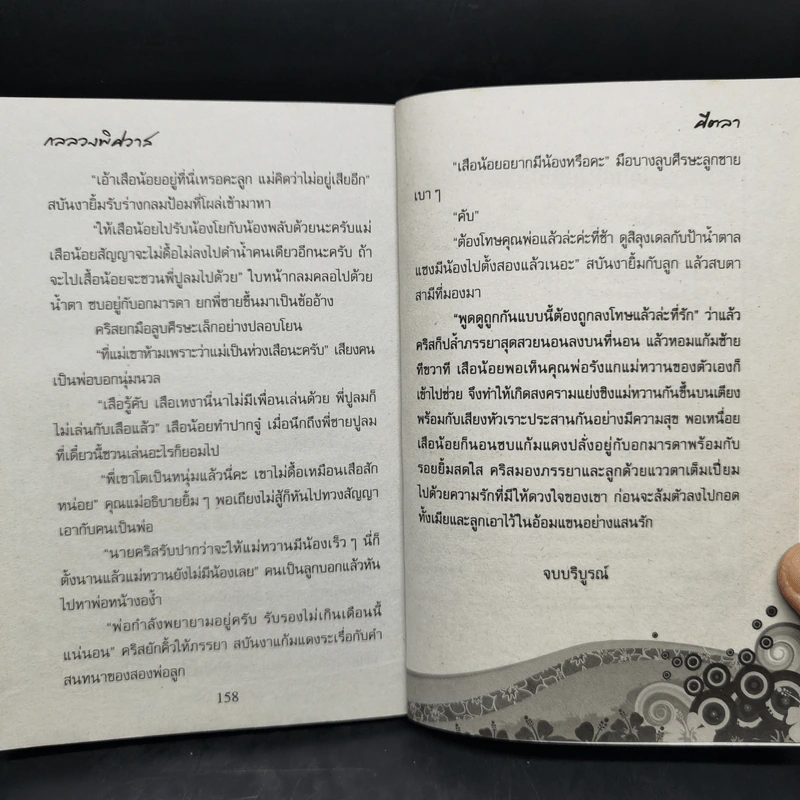 กลลวงพิศวาส
“เอ้าเสือน้อยอยู่ที่นี่เหรอคะลูก แม่คิดว่าไม่อยู่เสียอีก”
สบันงายิ้มรับร่างกลมป้อมที่โผล่เข้ามาหา
“ให้เสือน้อยไปรับน้องโยกับน้องพลับด้วยนะครับแม่
เสือน้อยสัญญาจะไม่ดื้อไม่ลงไปดำน้ำคนเดียวอีกนะครับ ถ้า
จะไปเสื้อน้อยจะชวนพี่ปูลมไปด้วย” ใบหน้ากลมคลอไปด้วย
น้ำตา ซบอยู่กับอกมารดา ยกพี่ชายขึ้นมาเป็นข้ออ้าง
คริสยกมือลูบศีรษะเล็กอย่างปลอบโยน
“ที่แม่เขาห้ามเพราะว่าแม่เป็นห่วงเสือนะครับ” เสียงคน
เป็นพ่อบอกนุ่มนวล
“เสือรู้คับ เสือเหงานี่นาไม่มีเพื่อนเล่นด้วย พี่ปูลมก็
ไม่เล่นกับเสือแล้ว” เสือน้อยทำปากจู๋ เมื่อนึกถึงพี่ชายปูลม
ที่เดี๋ยวนี้ชวนเล่นอะไรก็ยอมไป
“พี่เขาโตเป็นหนุ่มแล้วนี่คะ เขาไม่ดื้อเหมือนเสือสัก
หน่อย” คุณแม่อธิบายยิ้ม ๆ พอเถียงไม่สู้ก็หันไปทวงสัญญา
เอากับคนเป็นพ่อ
“นายคริสรับปากว่าจะให้แม่หวานมีน้องเร็ว ๆ นี่ก็
ตั้งนานแล้วแม่หวานยังไม่มีน้องเลย” คนเป็นลูกบอกแล้วหัน
ไปหาพ่อหน้างอง้ำ
“พ่อกำลังพยายามอยู่ครับ รับรองไม่เกินเดือนนี้
แน่นอน” คริสยักคิ้วให้ภรรยา สบันงาแก้มแดงระเรื่อกับคำ
สนทนาของสองพ่อลูก
158
ศีตลา
“เสือน้อยอยากมีน้องหรือคะ” มือบางลูบศีรษะลูกชาย
เบา ๆ
“คับ”
“ต้องโทษคุณพ่อแล้วล่ะค่ะที่ช้า ดูสิลุงเดลกับป้าน้ำตาล
แซงมีน้องไปตั้งสองแล้วเนอะ” สบันงายิ้มกับลูก แล้วสบตา
สามีที่มองมา
“พูดดูถูกกันแบบนี้ต้องถูกลงโทษแล้วล่ะที่รัก” ว่าแล้ว
คริสก็ปล้ำภรรยาสุดสวยนอนลงบนที่นอน แล้วหอมแก้มซ้าย
ทีขวาที เสือน้อยพอเห็นคุณพ่อรังแกแม่หวานของตัวเองก็
เข้าไปช่วย จึงทำให้เกิดสงครามแย่งชิงแม่หวานกันขึ้นบนเตียง
พร้อมกับเสียงหัวเราะประสานกันอย่างมีความสุข พอเหนื่อย
เสือน้อยก็นอนซบแก้มแดงปลั่งอยู่กับอกมารดาพร้อมกับ
รอยยิ้มสดใส คริสมองภรรยาและลูกด้วยแววตาเต็มเปี่ยม
ไปด้วยความรักที่มีให้ดวงใจของเขา ก่อนจะล้มตัวลงไปกอด
ทั้งเมียและลูกเอาไว้ในอ้อมแขนอย่างแสนรัก
จบบริบูรณ์